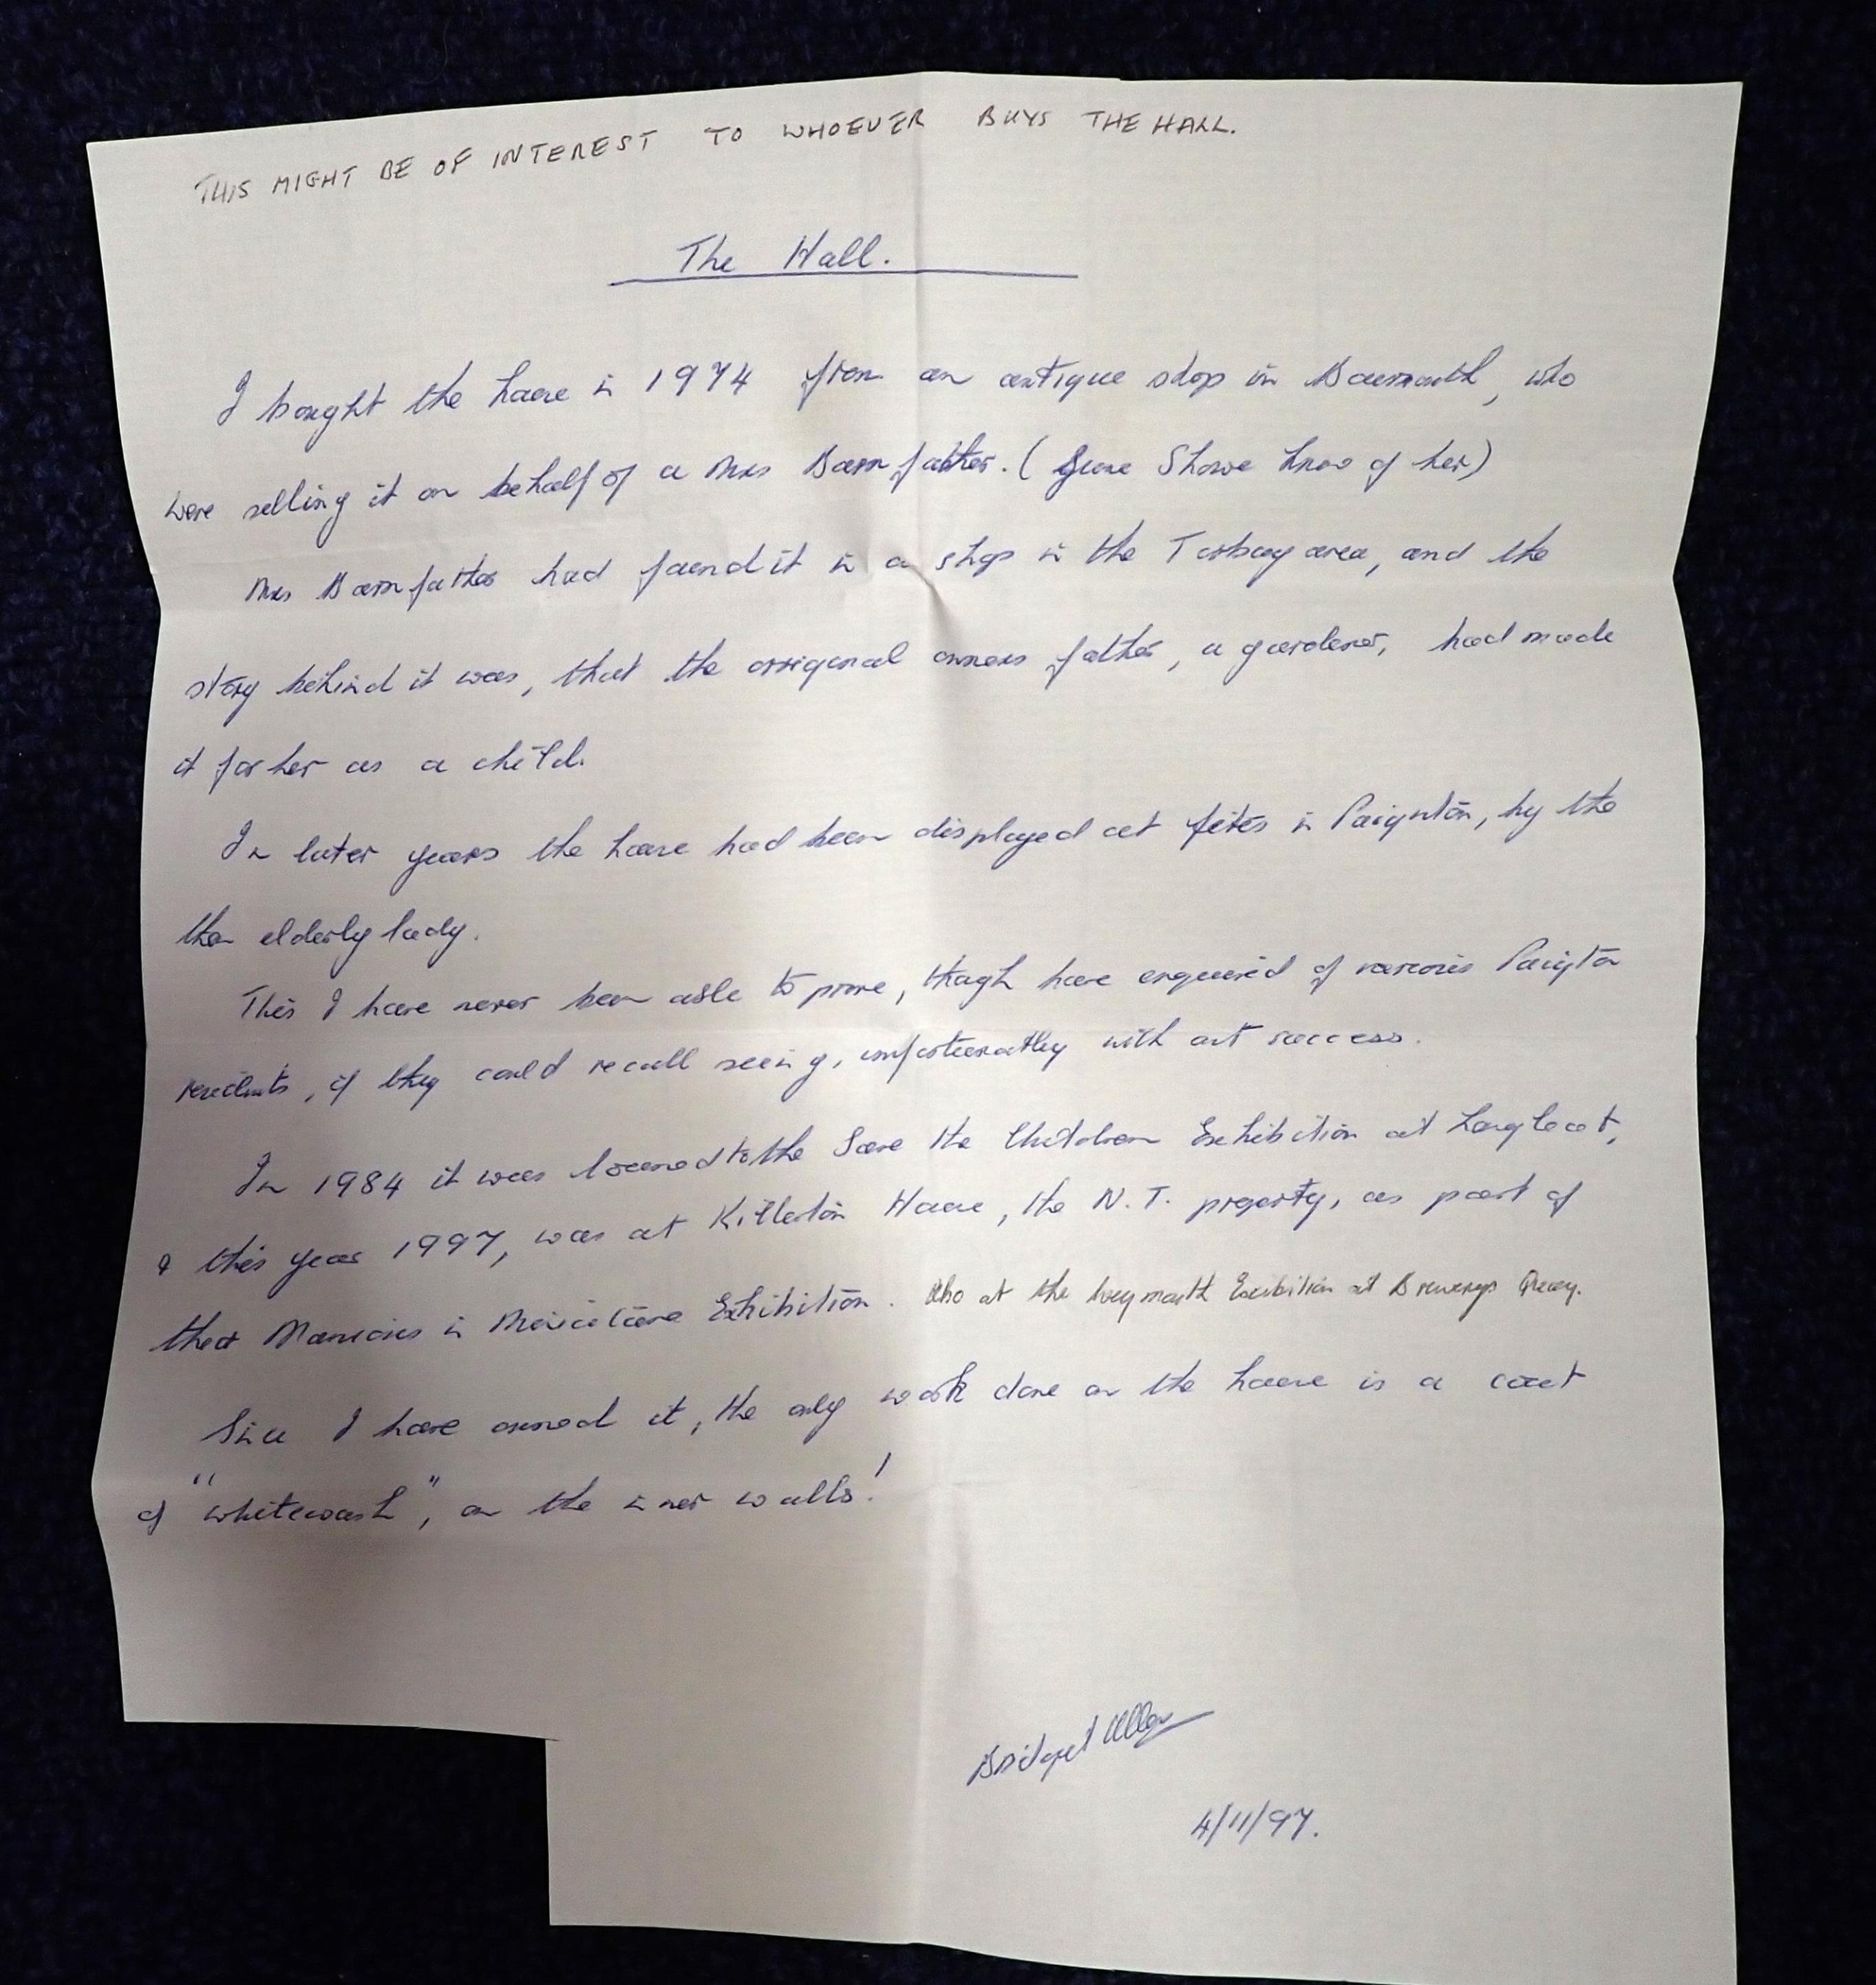 THIS MIGHT BE OF INTEREST TO WHOEVER BUYS THE HALL.
The Hall.
I bought the house in 1974 from an antique shop in Bournemouth, who
were selling it on behalf of a Mrs Barnfather. (June Stowe knew of her)
Mrs Barnfather had found it in a shop in the Torbay area, and the
story behind it was, that the original owners father, a gardener, had made
it for her as a child.
In later years the house had been displayed at fêtes in Paignton, by the
then elderly lady.
This I have never been able to prove, though have enquired of various Paignton
residents, if they could recall seeing, unfortunatley with out success.
In 1984 it was loaned to the Save the Children Exhibition at Longleat,
& this year 1997, was at Killerton House, the N.T. property, as part of
their Mansions in Miniature Exhibition. Also at the Weymouth Exibition at Brewerys Quay.
Since I have owned it, the only work done on the house is a coat
of "whitewash", on the inner walls!
Bridget
4/11/97.